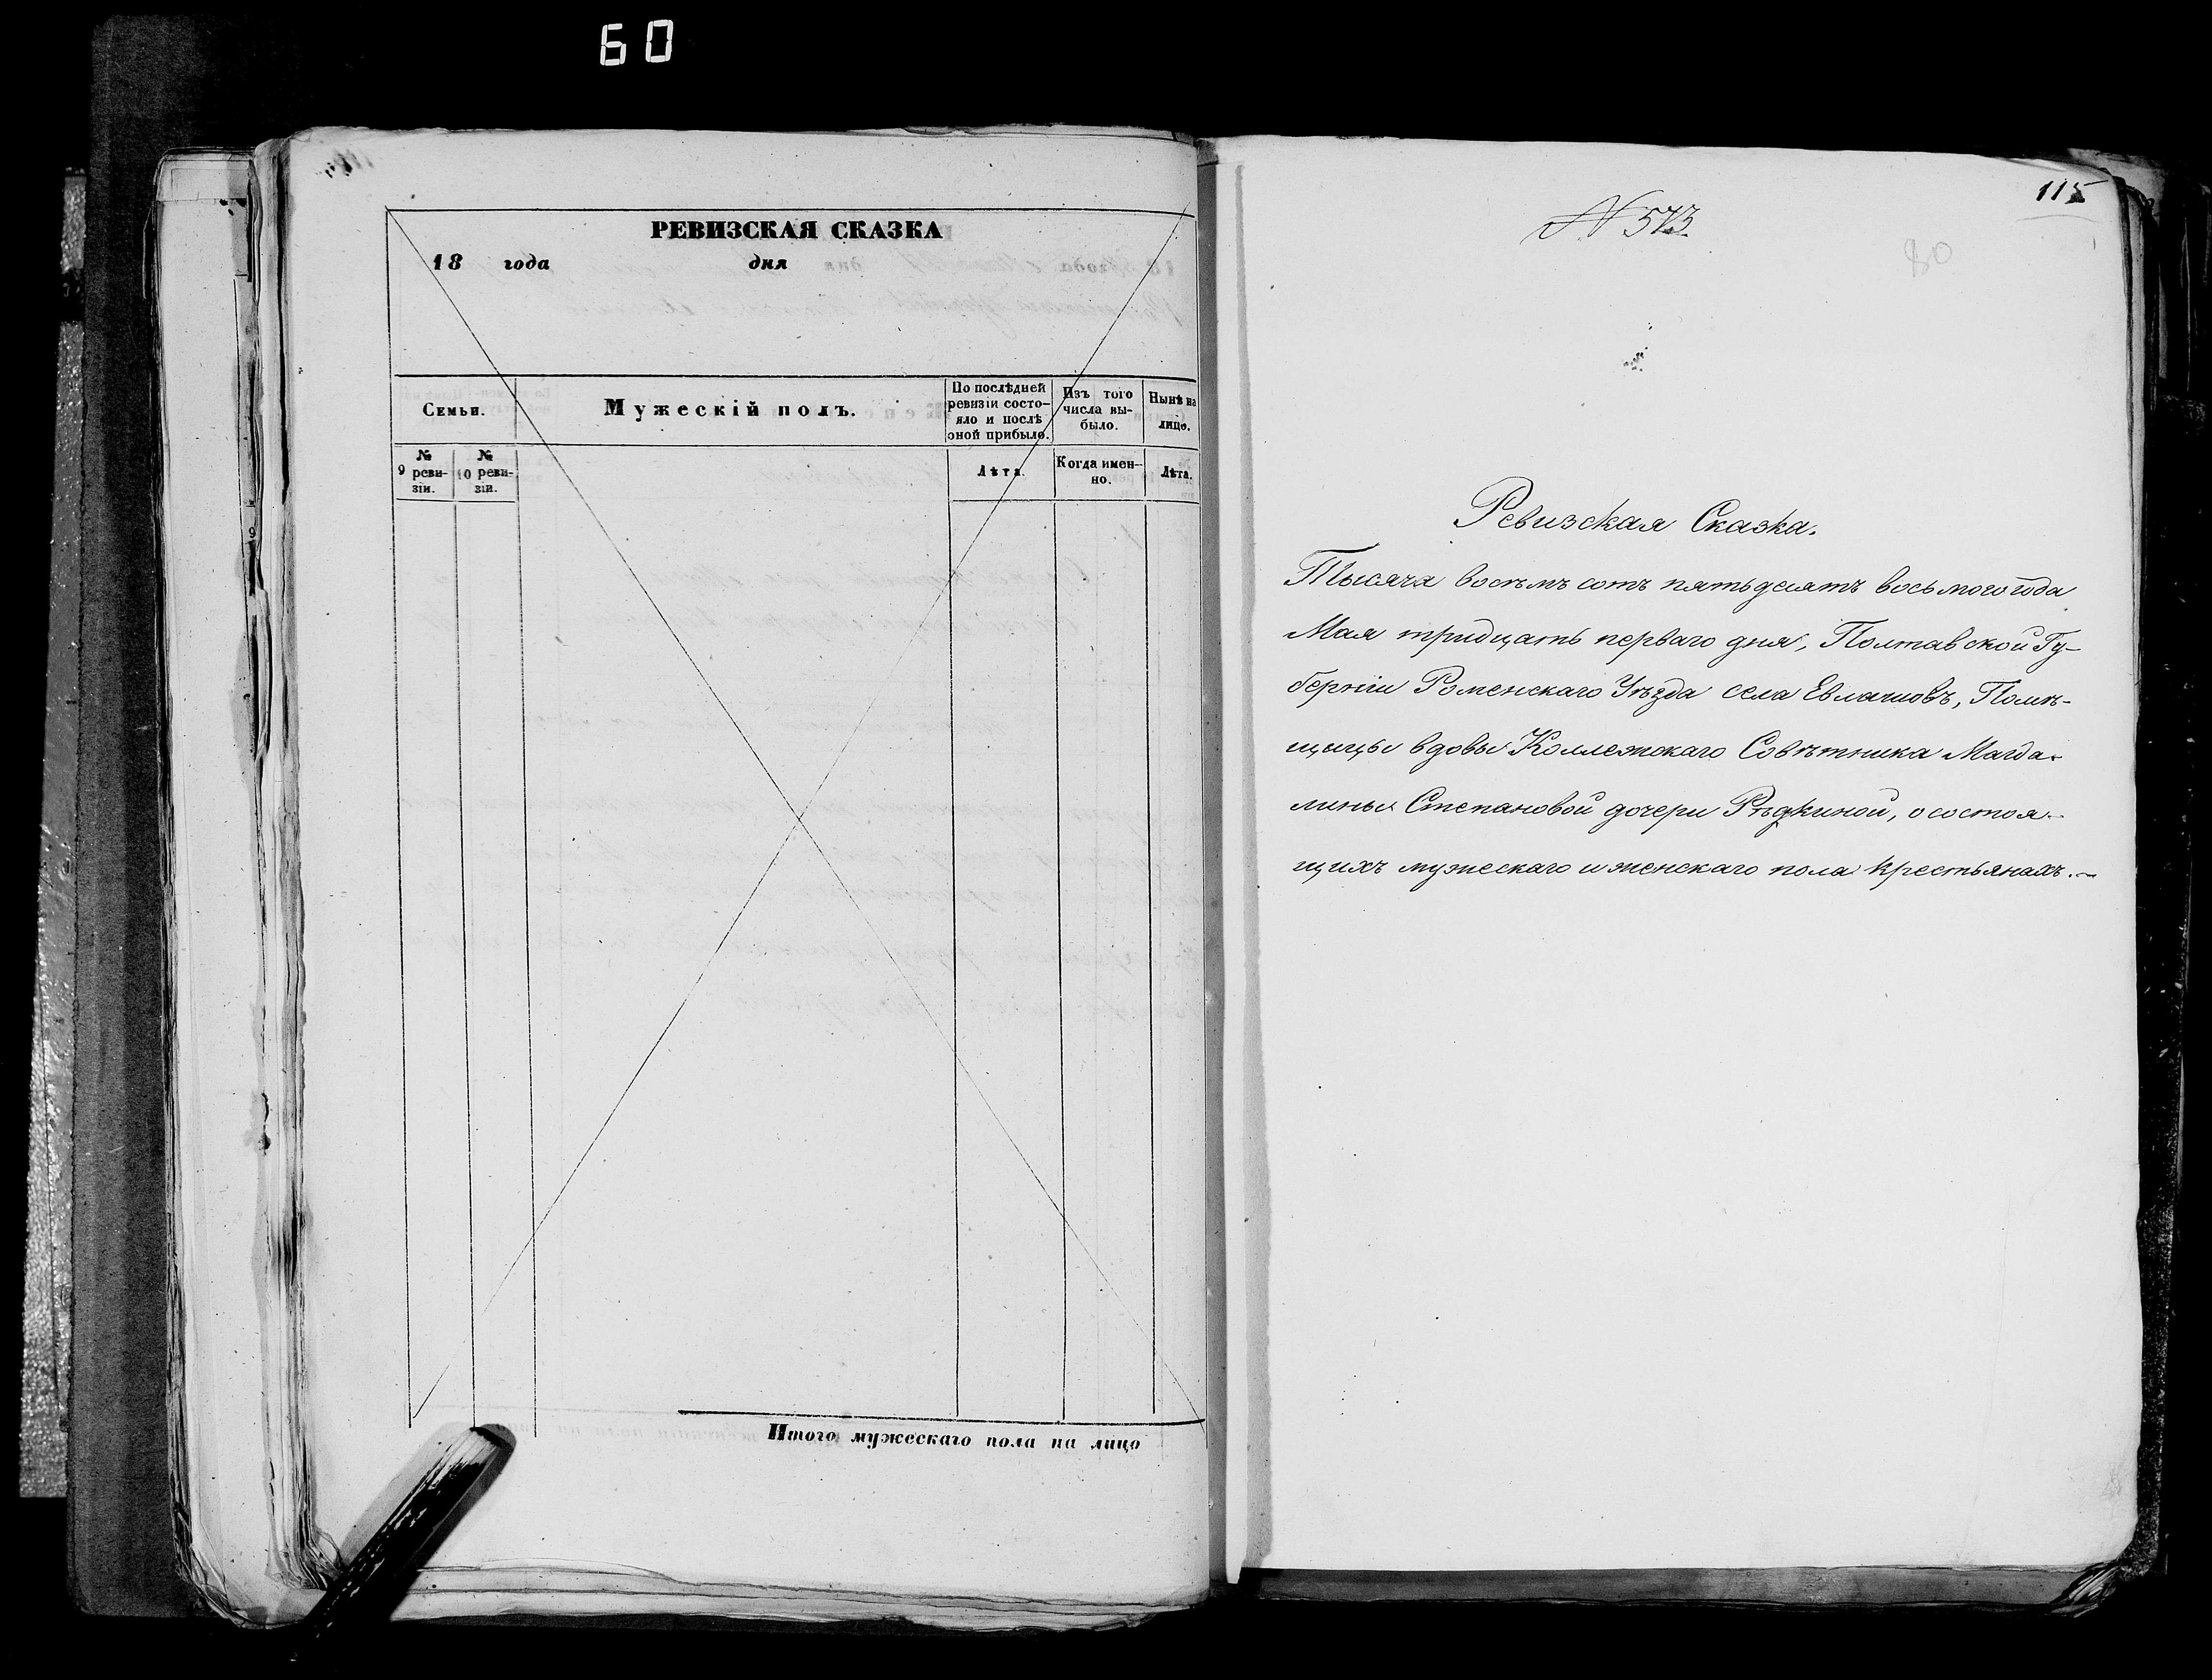 60
РЕВИЗСКАЯ СКАЗКА
18 года дня
Семьи.
Мужескій полъ.
По послѣдней
ревизіи состо-
яло и послѣ
оной прибыло.
Изъ того
числа вы-
было.
Нынѣ на
лицо.
№
9 реви-
зіи.
№
10 реви-
зіи.
Лѣта.
Когда имен-
но.
Лѣта.
Итого мужескаго пола на лицо
115
N 573.
80
Ревизская Сказка.
Тысяча восемъ сотъ пятьдесятъ восьмого года
Мая тридцать перваго дня, Полтавской Гу-
берніи Роменскаго Уѣзда села Евлашовъ, Помѣ-
щицы вдовы Коллежскаго Совѣтника Магда-
лины Степановой дочери Рѣдкиной, о состоя-
щихъ мужескаго и женскаго пола крестьянахъ.